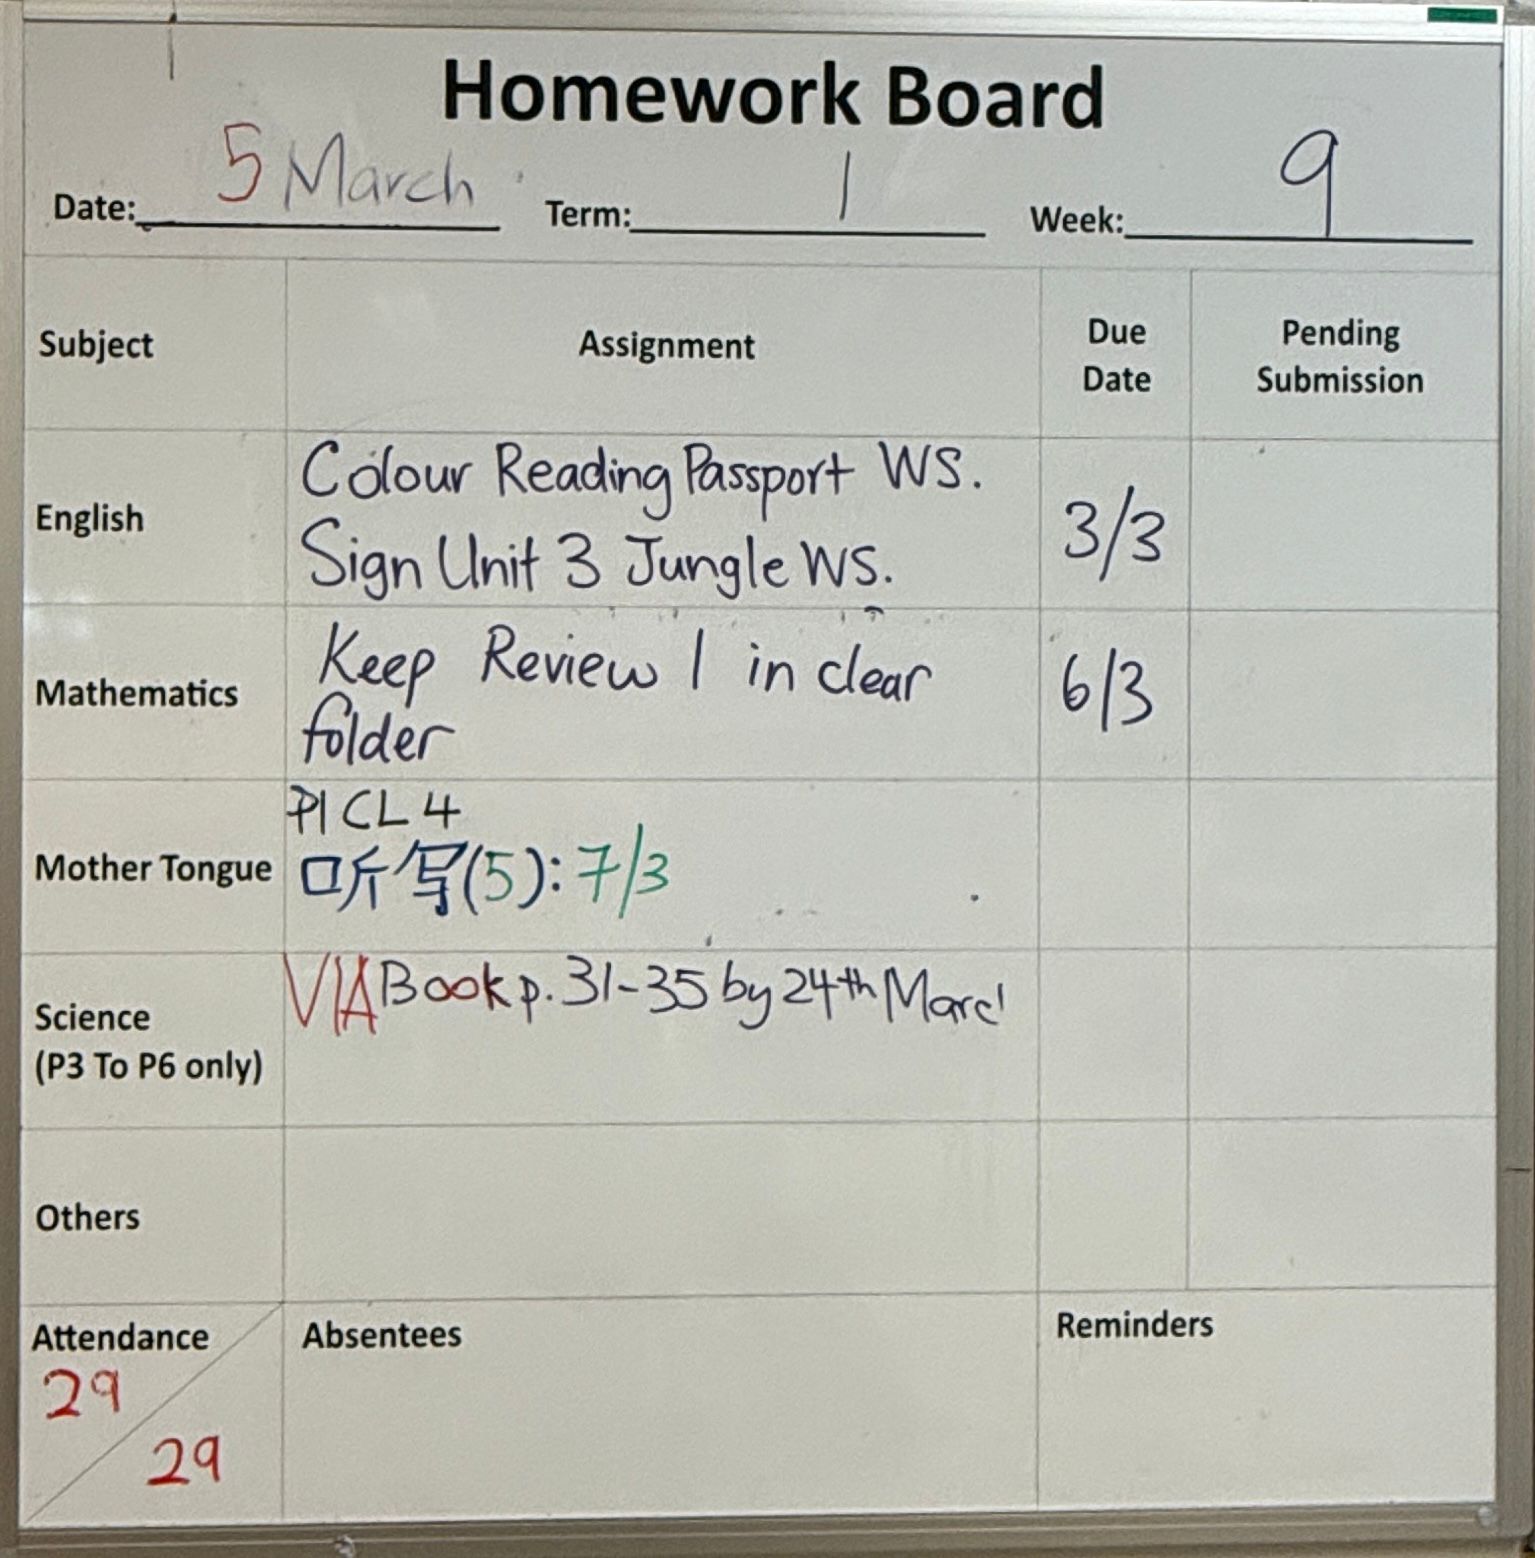 Homework Board
Date: 5 March Term: 1 Week: 9
Subject Assignment Due Date Pending Submission
English
Colour Reading Passport WS.
Sign Unit 3 Jungle WS.
3/3
Mathematics
Keep Review 1 in clear
folder
6/3
Mother Tongue
P1 CL 4
听写(5): 7/3
Science
(P3 To P6 only)
VIA Book p. 31-35 by 24th Marc
Others
Attendance
29
29
Absentees
Reminders